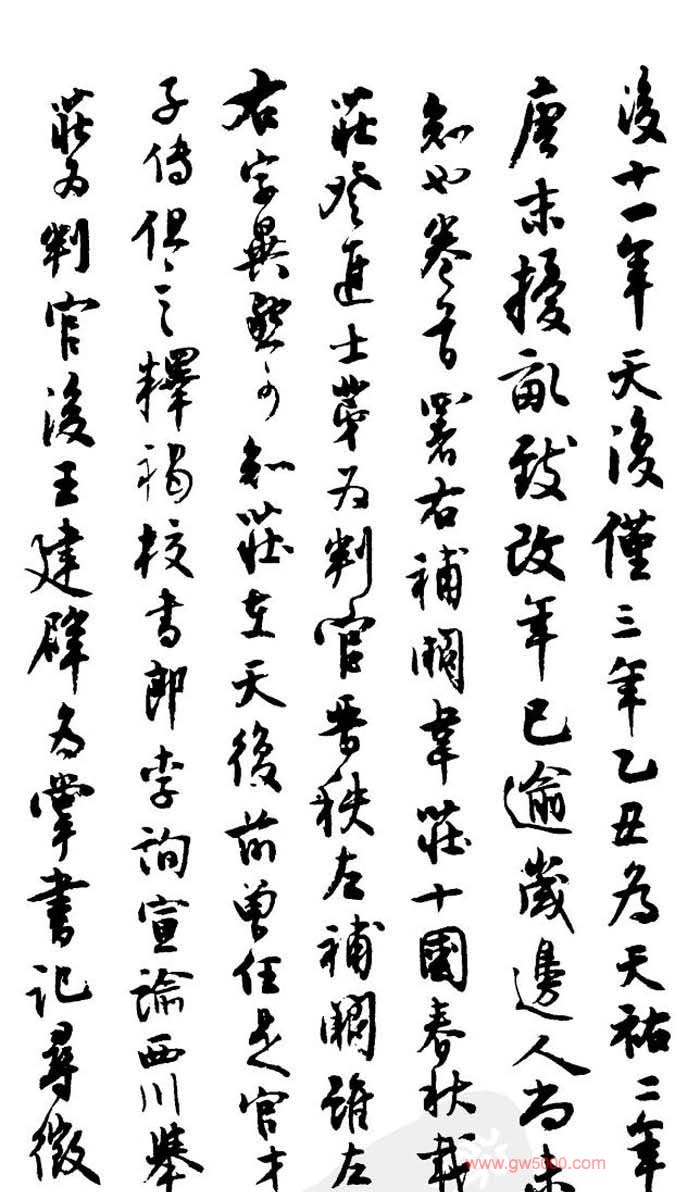 後十一年天復僅三年乙丑為天祐二年
唐末擾亂致改年已逾歲邊人尚未
知也卷首署右補闕韋莊十國春秋載
莊登進士第為判官晉秩左補闕雖左
右字異然可知莊在天復前曾任是官才
子傳但言釋褐校書郎李詢宣諭西川舉
莊為判官後王建辟為掌書記尋徵
www.gw5000.com